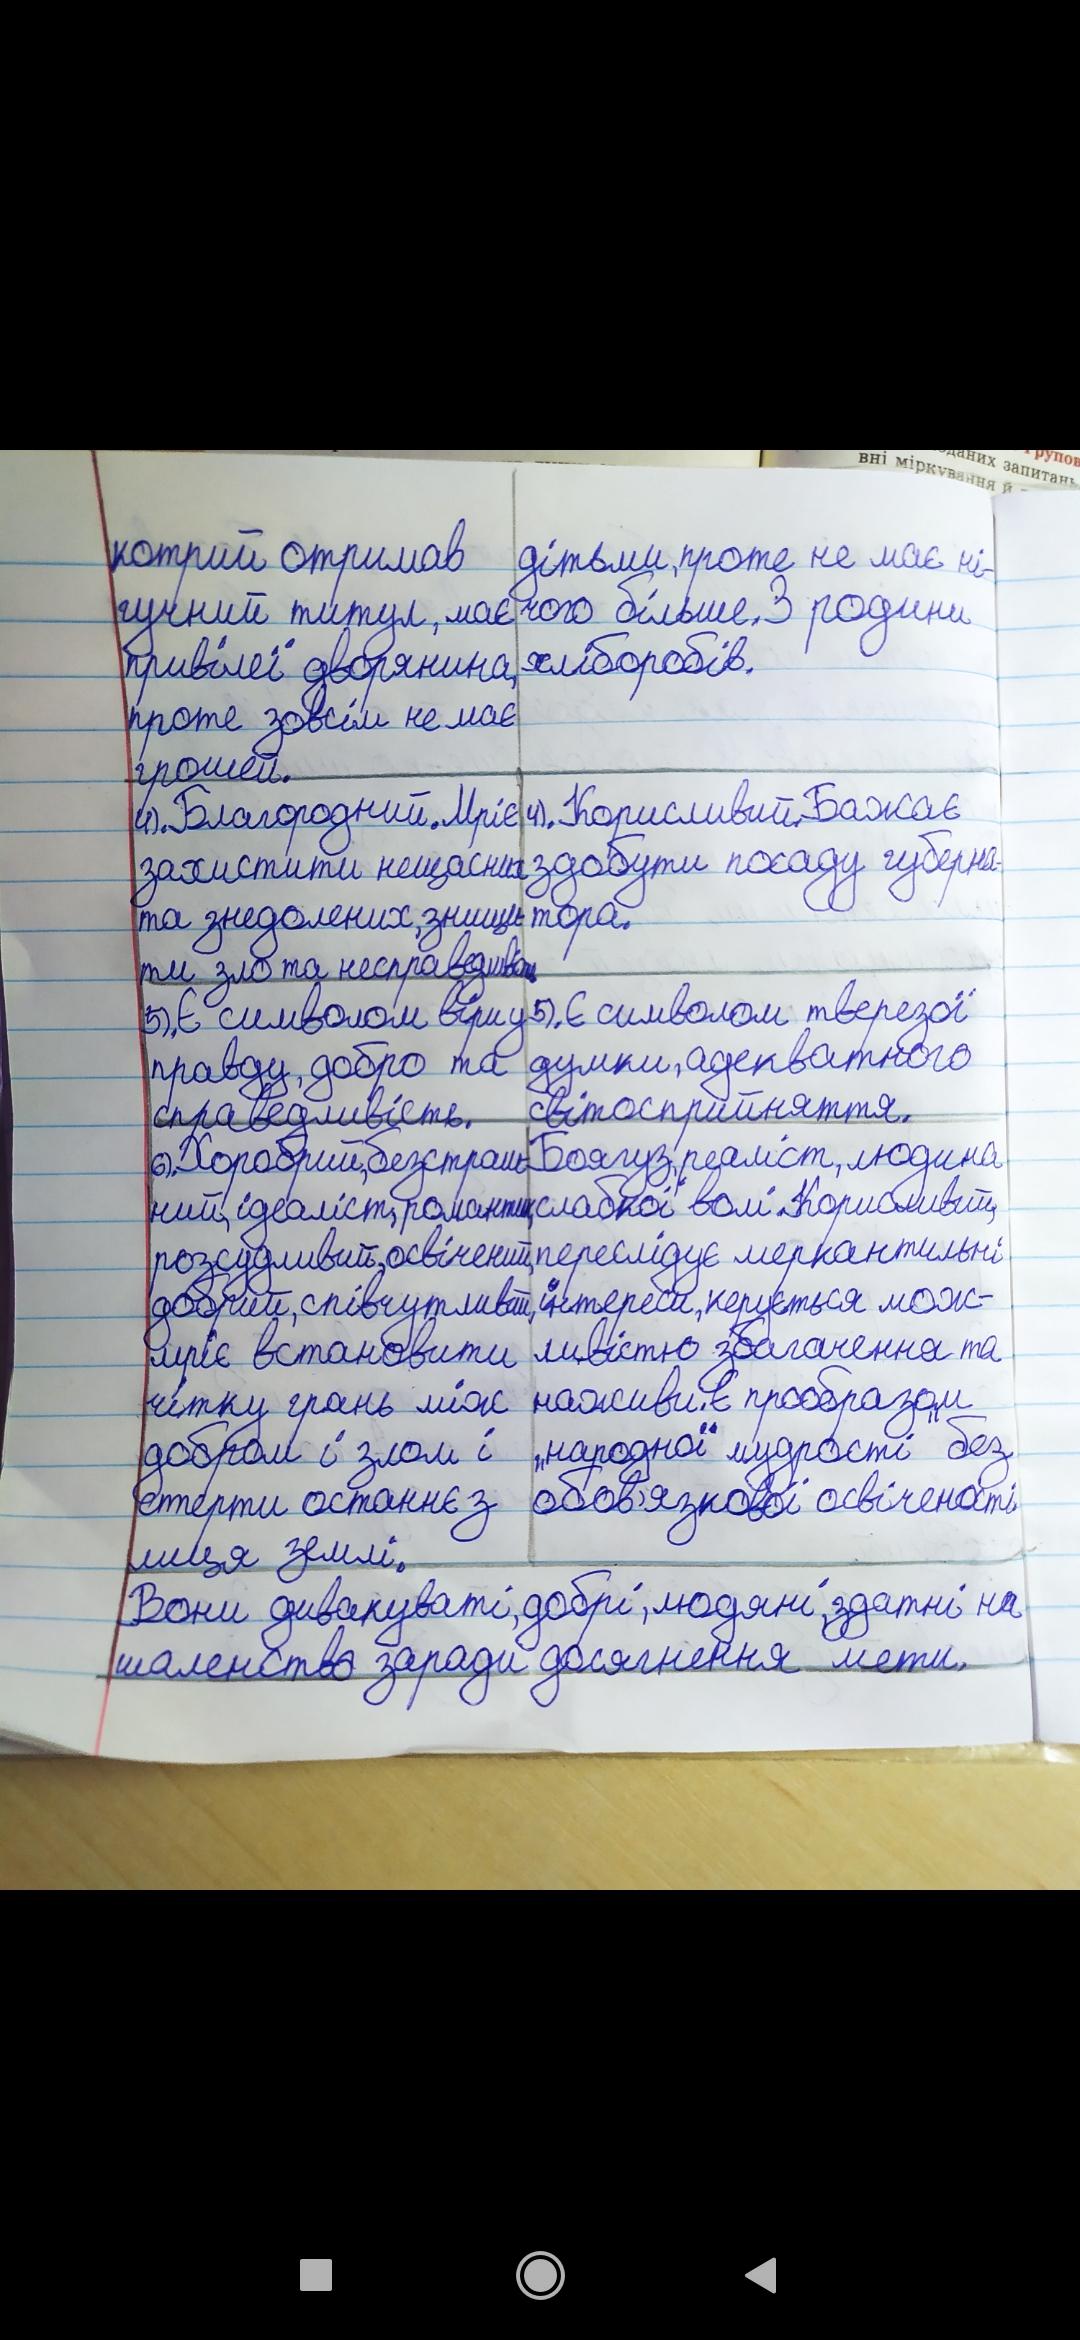 Групов
оданих запитань
вні міркування й
котрий отримав
гучний титул, має
привілеї дворянина,
проте зовсім не має
грошей.
дітьми, проте не має ні-
чого більше. З родини
хліборобів.
4). Благородний. Мріє
захистити нещасних
та знедолених, знищи-
ти зло та несправедливість.
4). Корисливий. Бажає
здобути посаду губерна-
тора.
5). Є символом віри у
правду, добро та
справедливість.
5). Є символом тверезої
думки, адекватного
світосприйняття.
6). Хоробрий, безстраш-
ний, ідеаліст, романтик,
розсудливий, освічений,
добрий, співчутливий,
мріє встановити
чітку грань між
добром і злом і
стерти останнє з
лиця землі.
Боягуз, реаліст, людина
слабкої волі. Корисливий,
переслідує меркантильні
інтереси, керується мож-
ливістю збагачення та
наживи. Є прообразом
„народної" мудрості" без
обов'язкової освіченості
Вони дивакуваті, добрі, людяні, здатні на
шаленство заради досягнення мети.